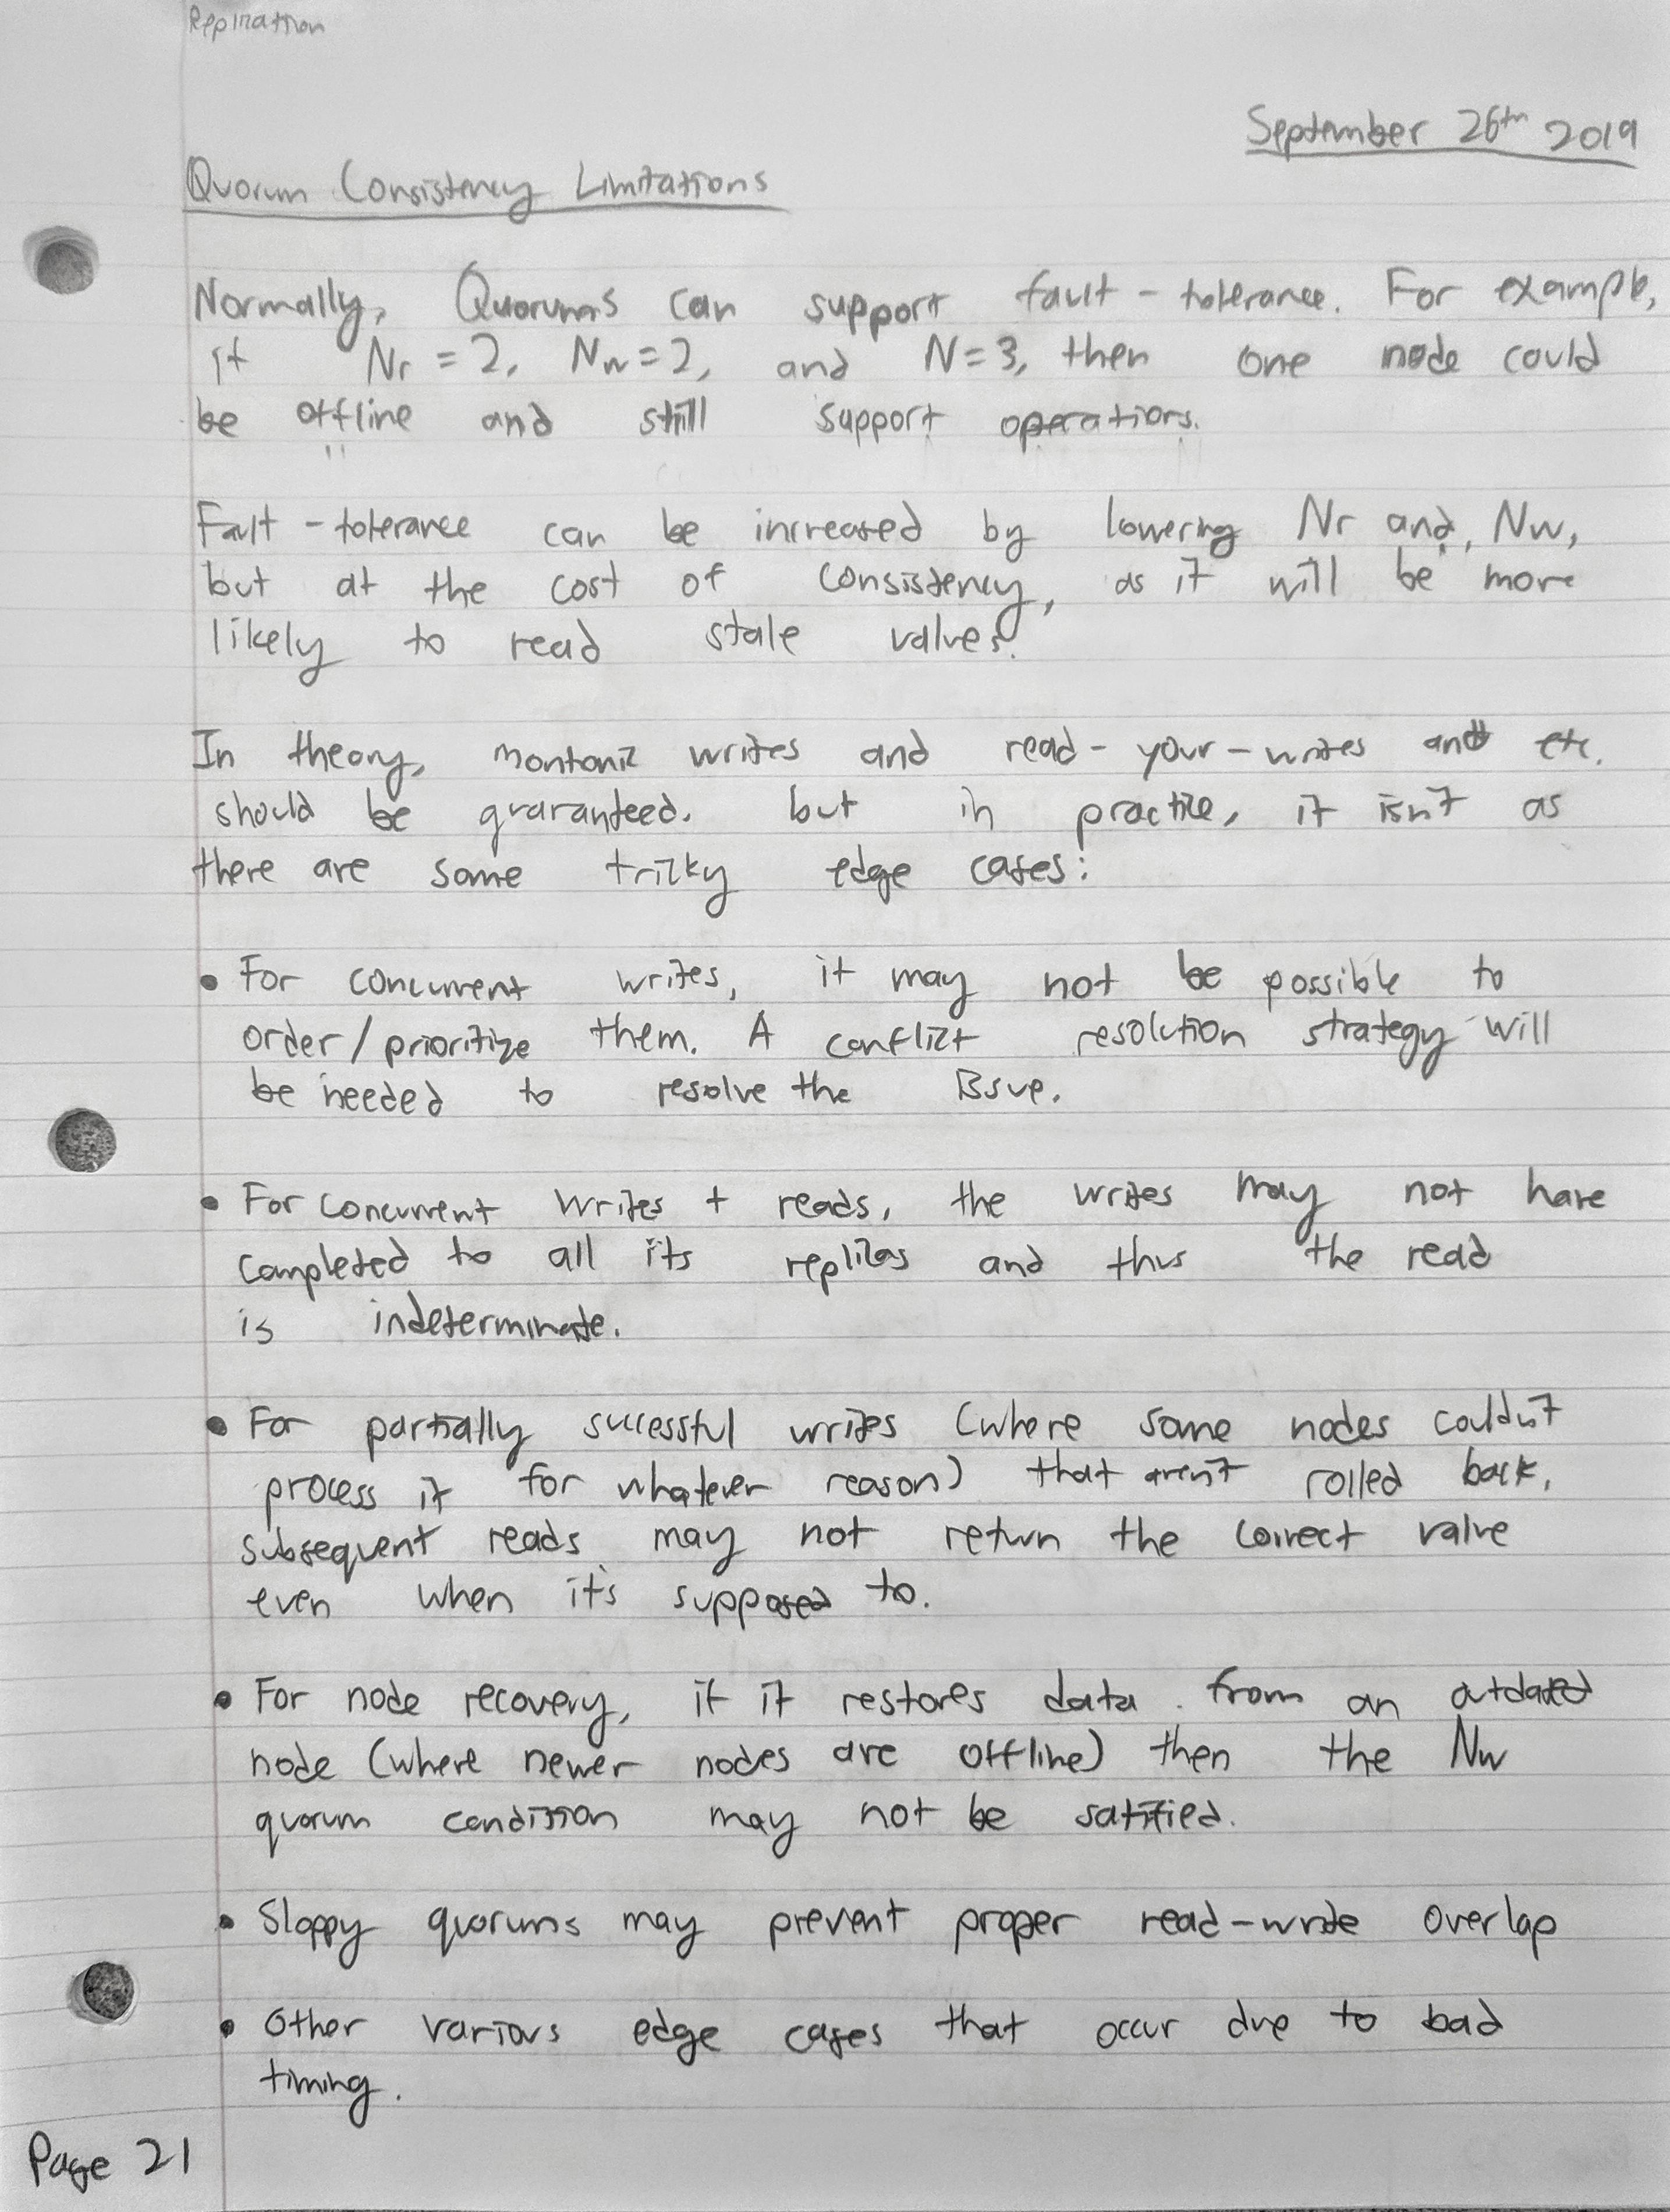 Replication
September 26th 2019
Quorum Consistency Limitations
Normally, Quorums can support fault-tolerance. For example,
if Nr = 2, Nw = 2, and N = 3, then one node could
be offline and still support operations.
Fault-tolerance can be increased by lowering Nr and, Nw,
but at the cost of consistency, as it will be more
likely to read stale values.
In theory, montonic writes and read-your-writes and etc.
should be guaranteed. but in practice, it isn't as
there are some tricky edge cases:
• For concurrent writes, it may not be possible to
order/prioritize them. A conflict resolution strategy will
be needed to resolve the issue.
• For concurrent writes + reads, the writes may not have
completed to all its replicas and thus the read
is indeterminate.
• For partially sucessful writes (where some nodes couldn't
process it for whatever reason) that aren't rolled back,
subsequent reads may not return the correct value
even when it's supposed to.
• For node recovery, if it restores data from an outdated
node (where newer nodes are offline) then the Nw
quorum condition may not be satified.
• Sloppy quorums may prevent proper read-write overlap
• Other various edge cases that occur due to bad
timing.
Page 21